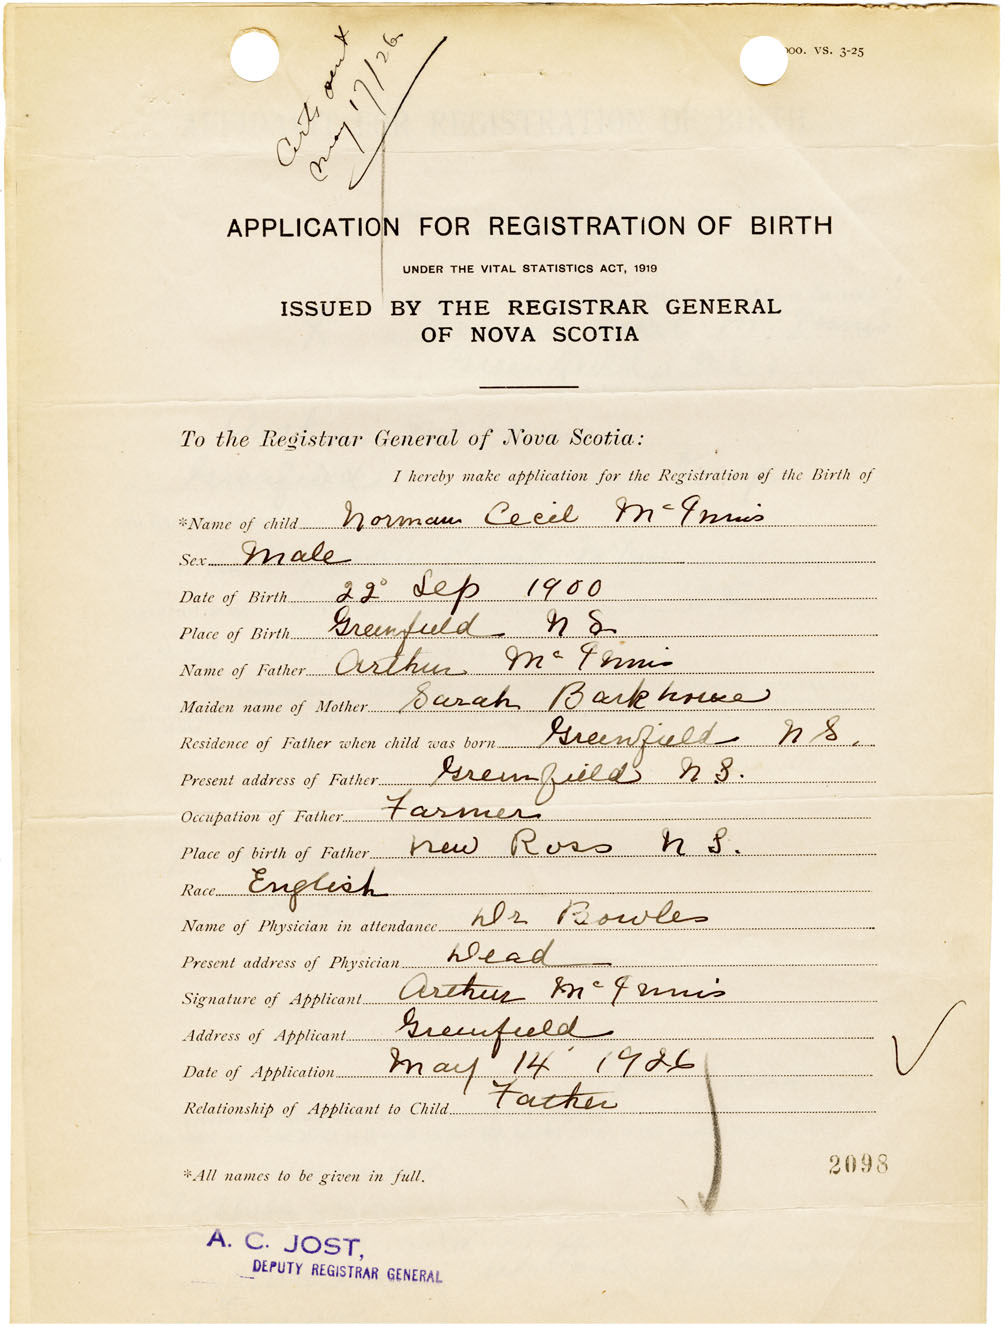 Certs sent
May 17/26
000. VS. 3-25
APPLICATION FOR REGISTRATION OF BIRTH
UNDER THE VITAL STATISTICS ACT, 1919
ISSUED BY THE REGISTRAR GENERAL
OF NOVA SCOTIA
To the Registrar General of Nova Scotia:
I hereby make application for the Registration of the Birth of
*Name of child Norman Cecil McInnis
Sex Male
Date of Birth 22° Sep 1900
Place of Birth Greenfield N S
Name of Father Arthur McInnis
Maiden name of Mother Sarah Barkhouse
Residence of Father when child was born Greenfield N S.
Present address of Father Greenfield N S.
Occupation of Father Farmer
Place of birth of Father New Ross N S.
Race English
Name of Physician in attendance Dr Bowles
Present address of Physician Dead
Signature of Applicant Arthur McInnis
Address of Applicant Greenfield
Date of Application May 14 1926
Relationship of Applicant to Child Father
2098
*All names to be given in full.
A. C. JOST,
DEPUTY REGISTRAR GENERAL